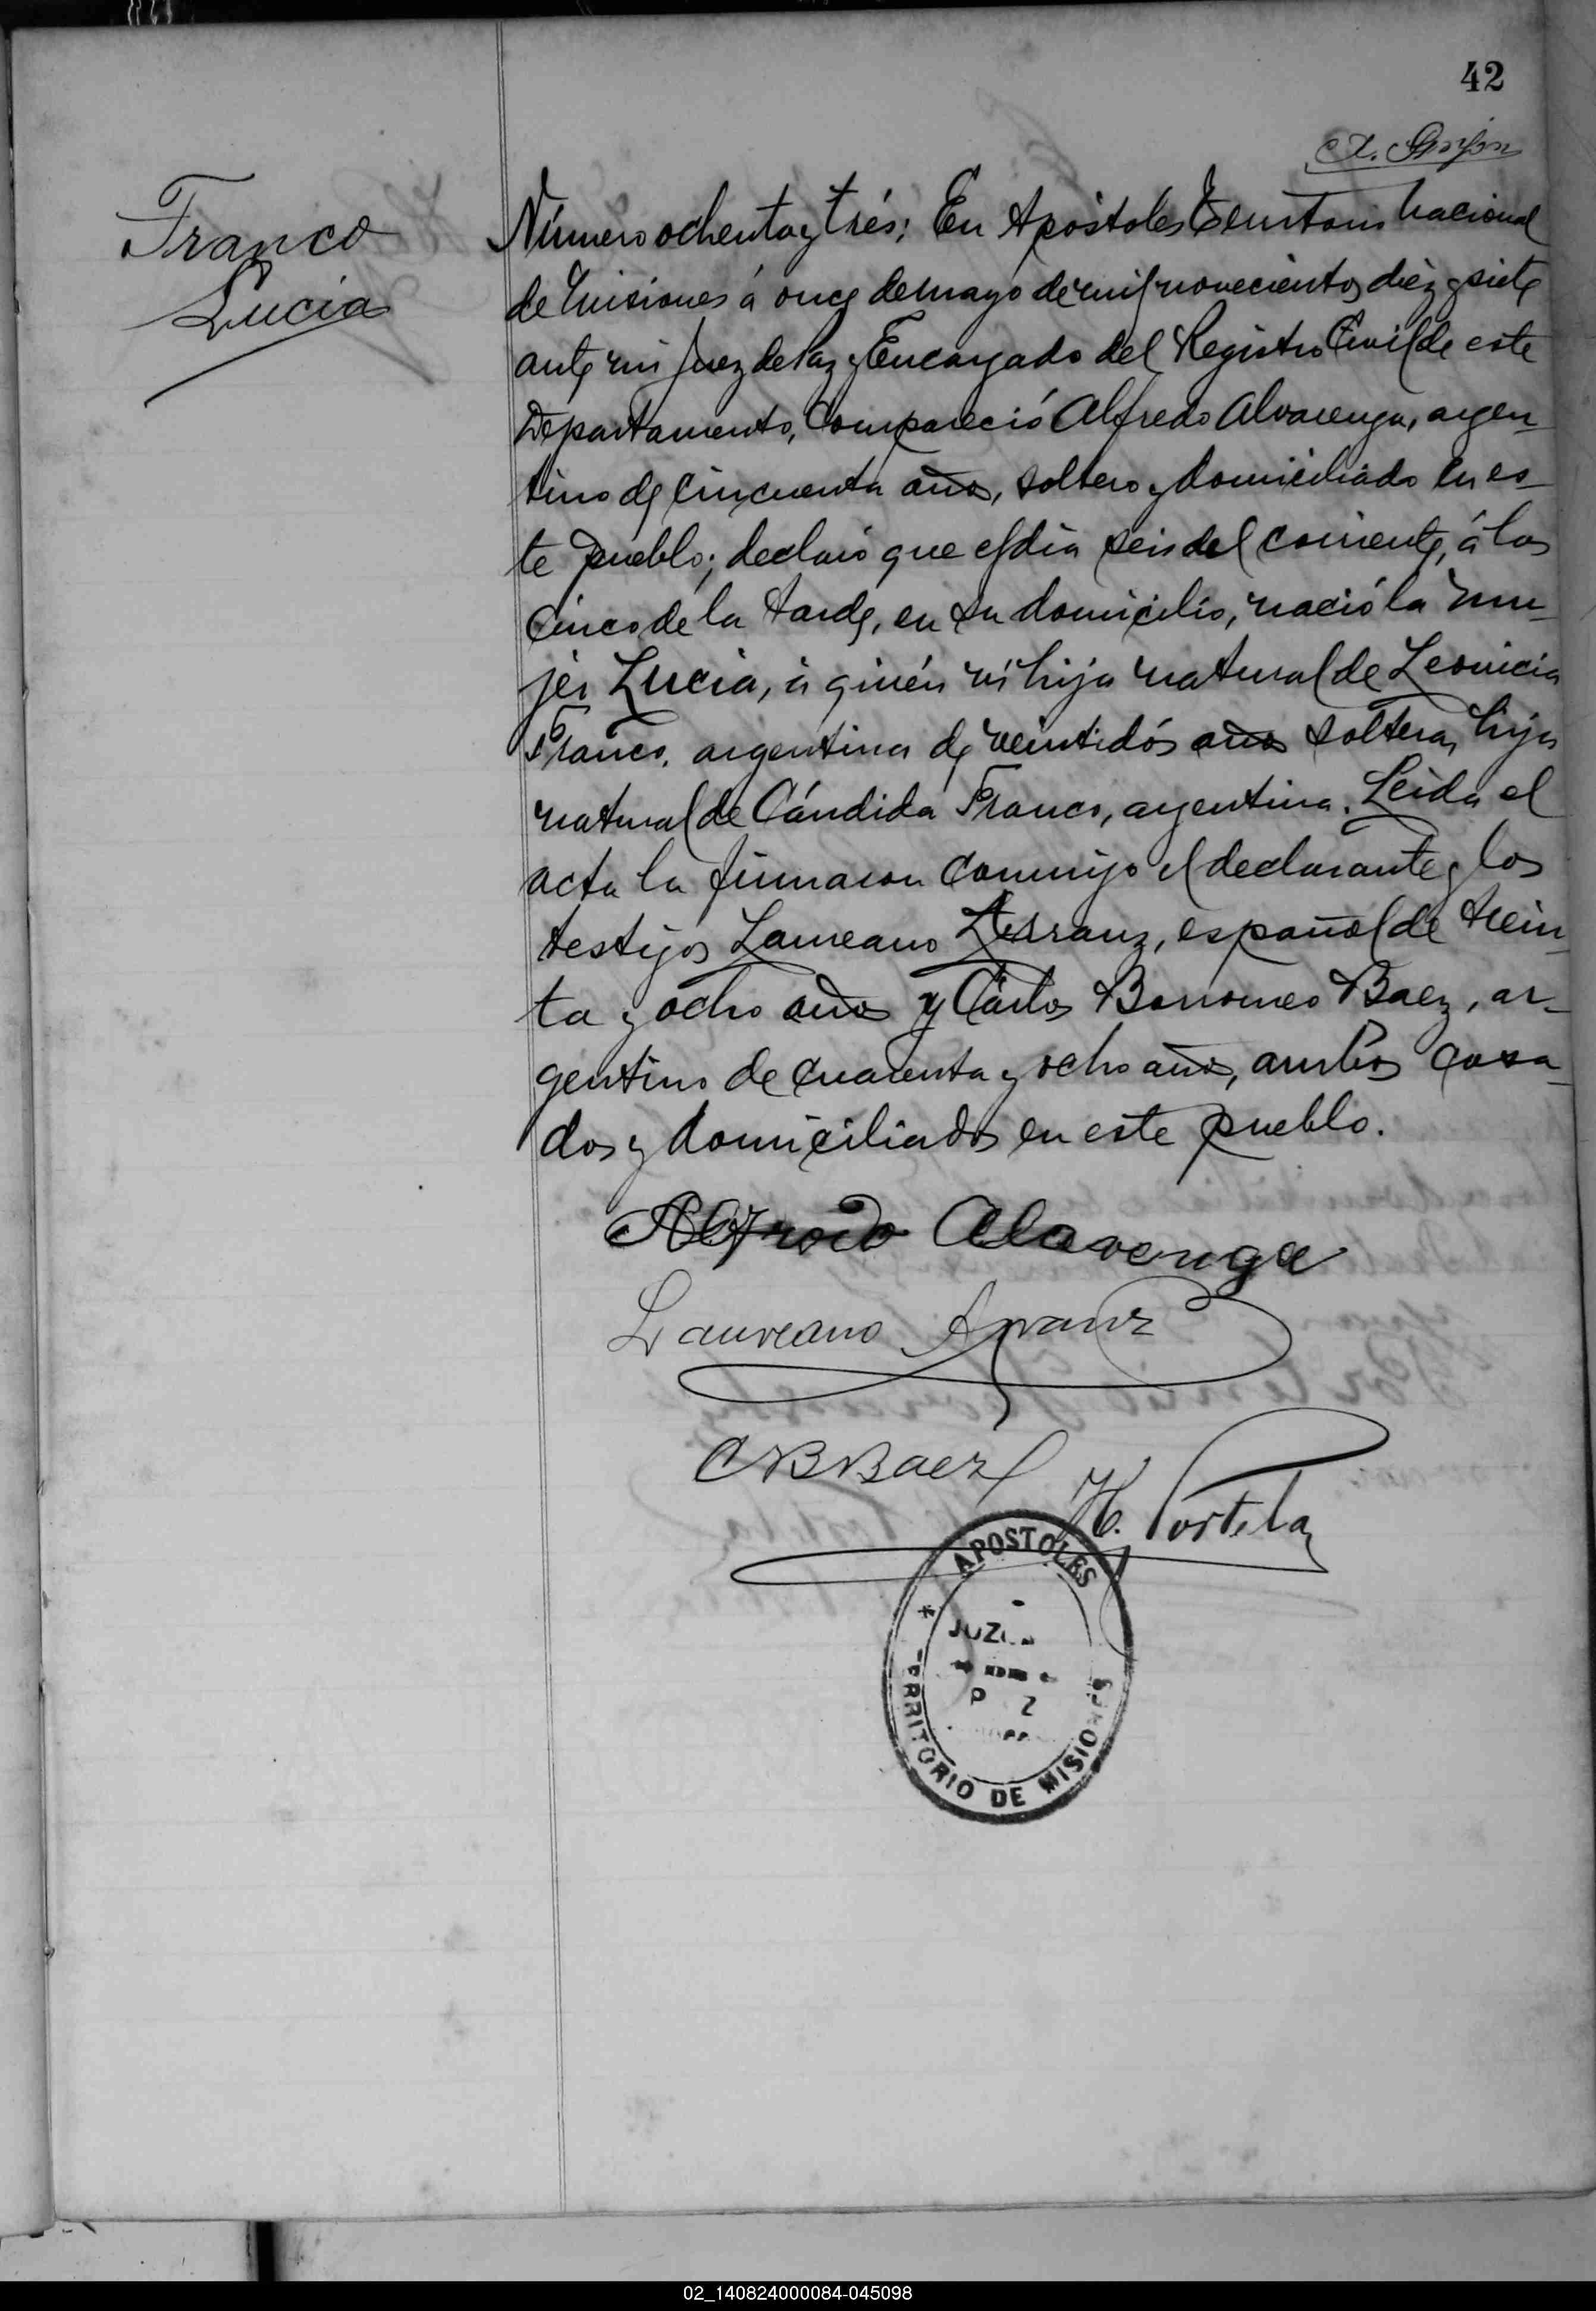 42
Franco
Lucia
Número ochenta y trés; En Apóstoles Territorio Nacional
de Misiones á once de mayo de mil novecientos diéz y siete
ante mi Juez de Paz y Encargado del Registro Civil de este
Departamento, Compareció Alfredo Alvarenga, argen-
tino de cincuenta años, soltero y domiciliado en es-
te pueblo; declaró que el día seis del corriente, á las
Cinco de la tarde, en su domicilio, nació la mu-
jer Lucia, á quién ví hija natural de Leonicia
Franco, argentina de veintidós años soltera, hija
natural de Cándida Franco, argentina. Leida el
acta la firmaron conmigo el declarante y los
testigos Laureano Arranz, español de trein-
ta y ocho años y Cárlos Borromeo Baez, ar-
gentino de cuarenta y ocho años, ambos casa-
dos y domiciliados en este pueblo.
Alfredo Alavenga
Laureano Arranz
CBBaez
H. Portela
APOSTOLES
JUZ
DE
P Z
TERRITORIO DE MISIONES
02_140824000084-045098